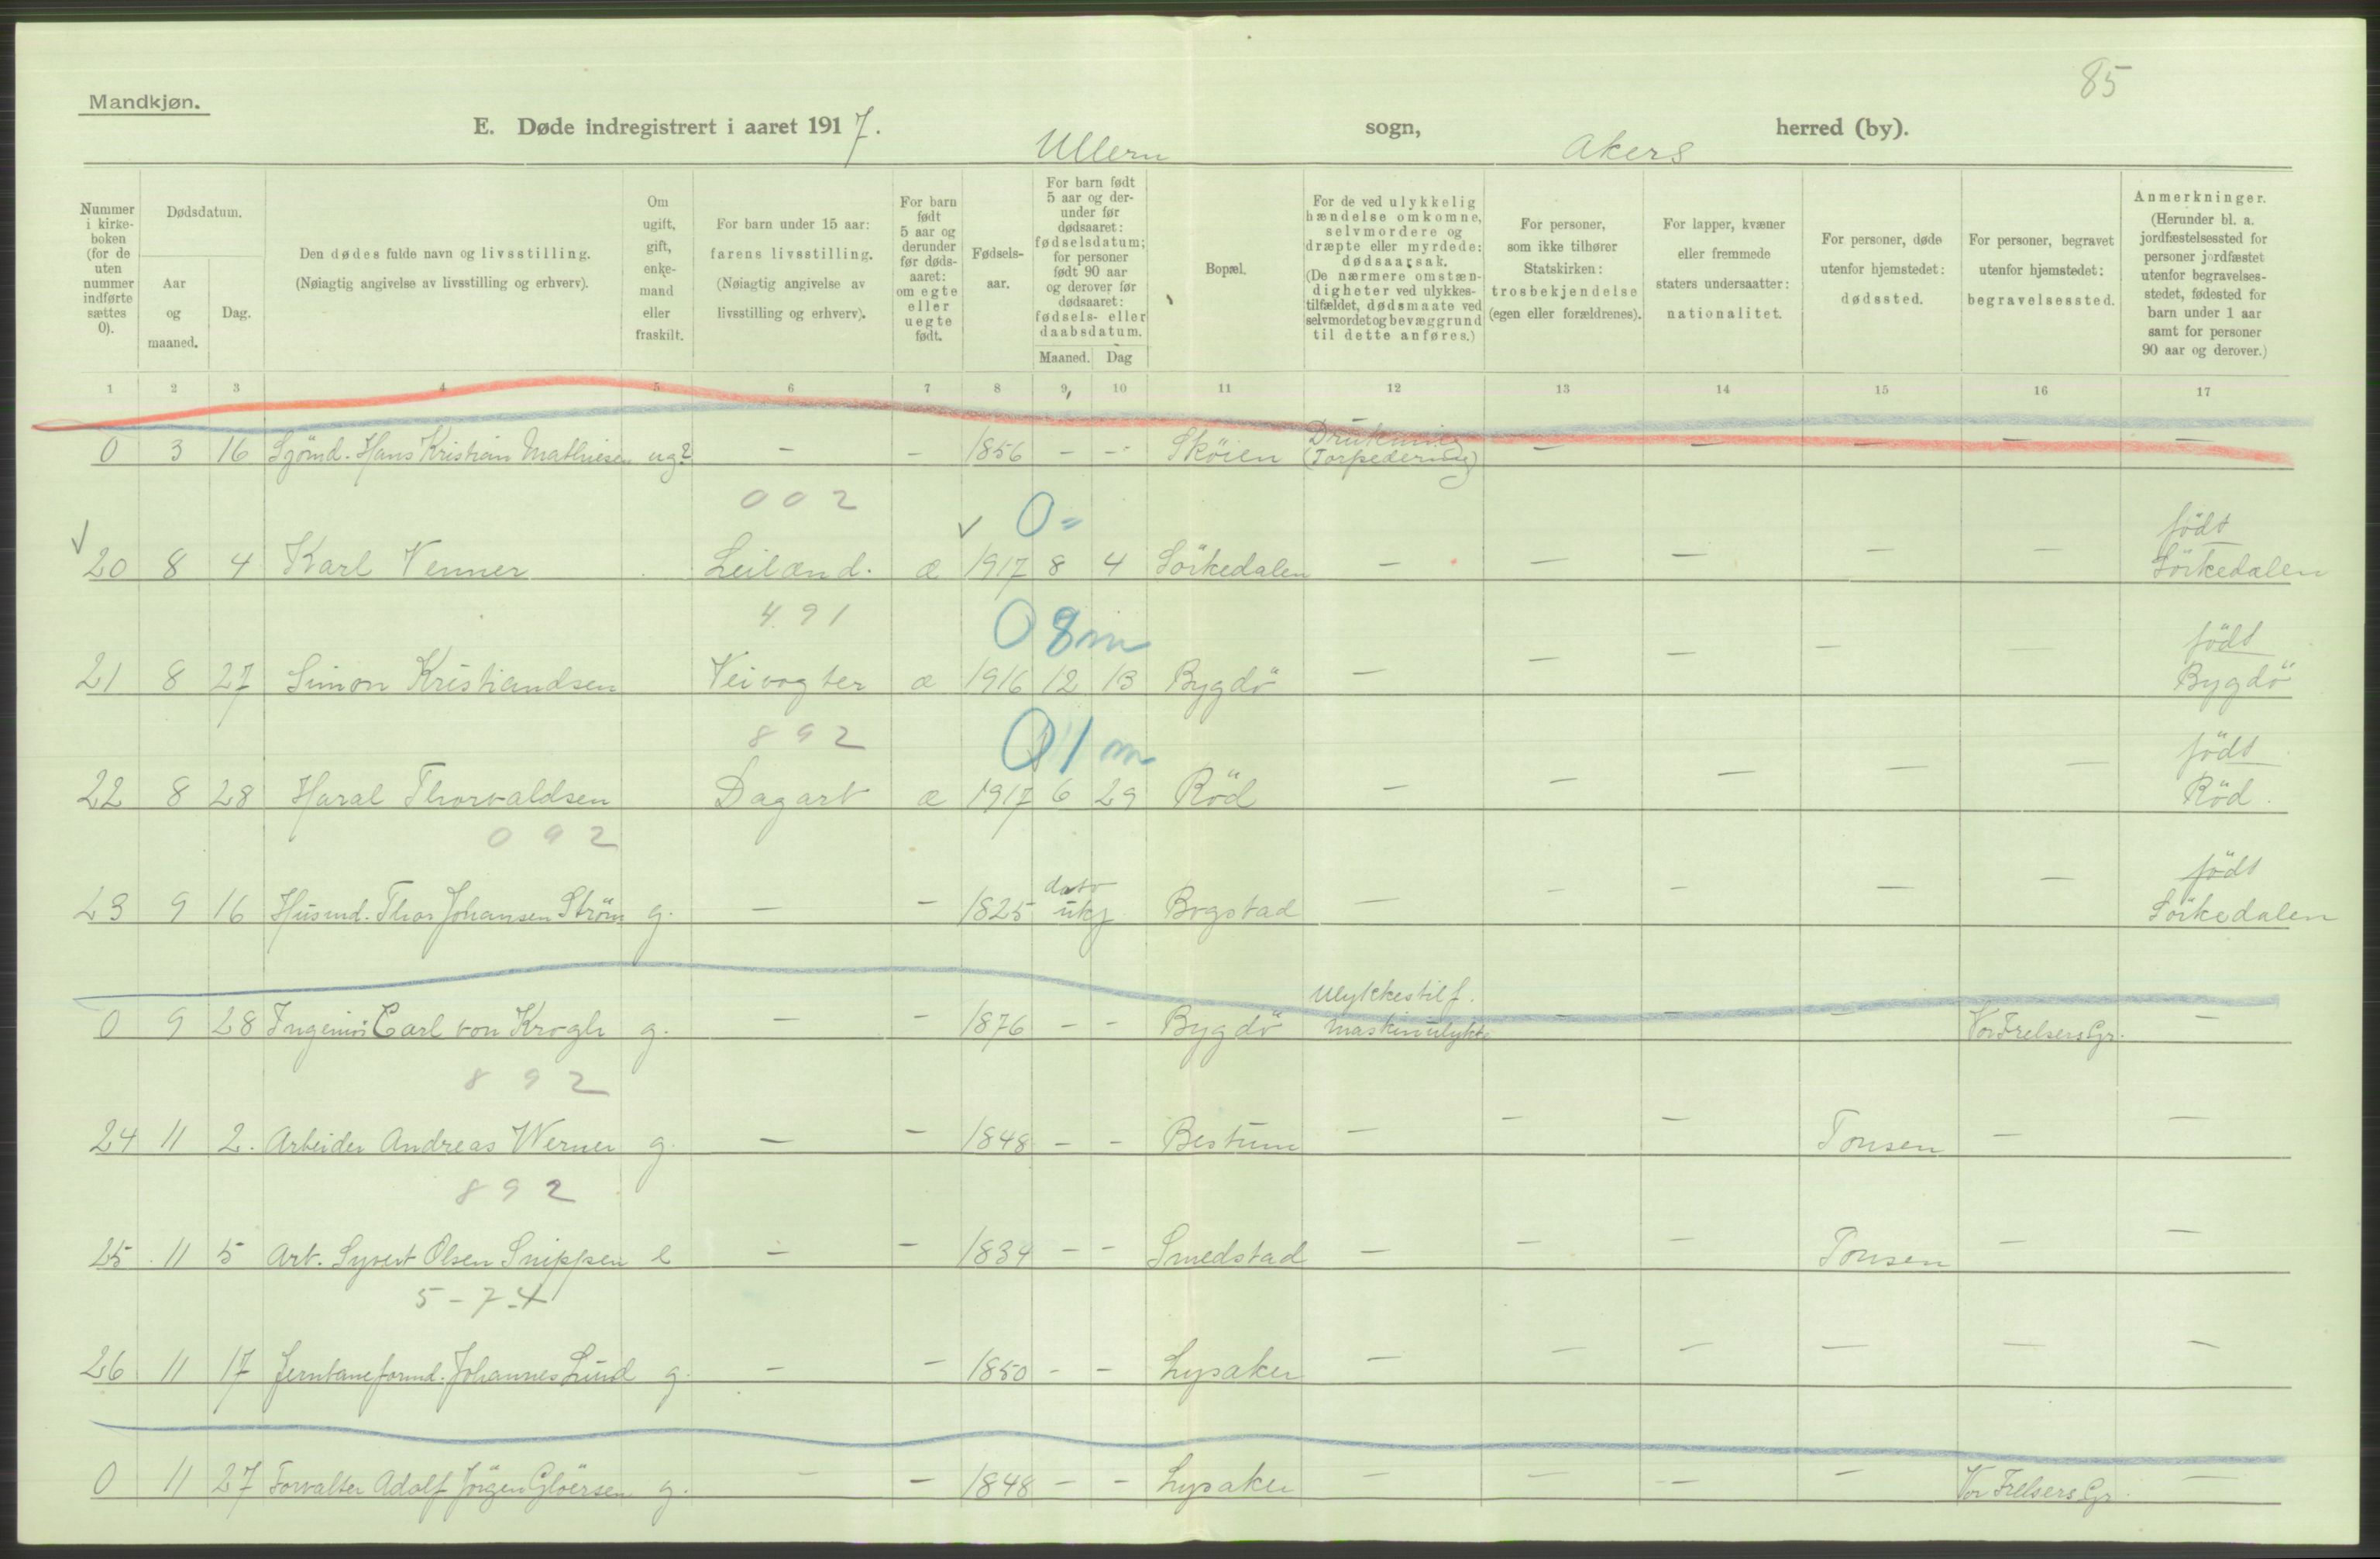 85
Mandkjøn.
E. Døde indregistrert i aaret 1917. Ullern sogn, Akers herred (by).
Nummer i kirkeboken (for de uten nummer indførte sættes 0).
Dødsdatum.
Aar og maaned.
Dag.
Den dødes fulde navn og livsstilling.
(Nøiagtig angivelse av livsstilling og erhverv).
Om ugift, gift, enkemand eller fraskilt.
For barn under 15 aar: farens livsstilling.
(Nøiagtig angivelse av livsstilling og erhverv).
For barn født 5 aar og derunder før dødsaaret: om egte eller uegte født.
Fødselsaar.
For barn født 5 aar og derunder før dødsaaret: fødselsdatum; for personer født 90 aar og derover før dødsaaret: fødsels- eller daabsdatum.
Maaned. Dag
Bopæl.
For de ved ulykkelig hændelse omkomne, selvmordere og dræpte eller myrdede: dødsaarsak.
(De nærmere omstændigheter ved ulykkestilfældet, dødsmaate ved selvmordet og bevæggrund til dette anføres.)
For personer, som ikke tilhører Statskirken: trosbekjendelse (egen eller forældrenes).
For lapper, kvæner eller fremmede staters undersaatter: nationalitet.
For personer, døde utenfor hjemstedet: dødssted.
For personer, begravet utenfor hjemstedet: begravelsessted.
Anmerkninger.
(Herunder bl. a. jordfæstelsessted for personer jordfæstet utenfor begravelsesstedet, fødested for barn under 1 aar samt for personer 90 aar og derover.)
1 2 3 4 5 6 7 8 9 10 11 12 13 14 15 16 17
0 3 16 Sjømd. Hans Kristian Mathiesen ug? – – 1856 – – Sköien Drukning (Torpedering) – – – – –
002 0=
20 8 4 Karl Venner Leilænd. æ 1917 8 4 Sörkedalen – – – – – født Sörkedalen
491 0 8m
21 8 27 Simon Kristiandsen Veivogter æ 1916 12 13 Bygdö – – – – – født Bygdö
892 0 1m
22 8 28 Haral Thorvaldsen Dagarb æ 1917 6 29 Röd – – – – – født Röd.
092
23 9 16 Husmd. Thor Johansen Ström g. – – 1825 dato ukj. Bogstad – – – – – født Sörkedalen
0 9 28 Ingeniör Carl von Krogh g. – – 1876 – – Bygdö Ulykkestilf. Maskinulykke – – – Vor Frelsers Gr. –
892
24 11 2. Arbeider Andreas Werner g. – – 1848 – – Bestum – – – Tonsen – –
892
25 11 5 Arb. Syvert Olsen Snippen e – – 1834 – – Smedstad – – – Tonsen – –
5-7-4
26 11 17 Jernbaneformd. Johannes Lund g. – – 1850 – – Lysaker – – – – – –
0 11 27 Forvalter Adolf Jörgen Glöersen g. – – 1848 – – Lysaker – – – – Vor Frelsers Gr. –